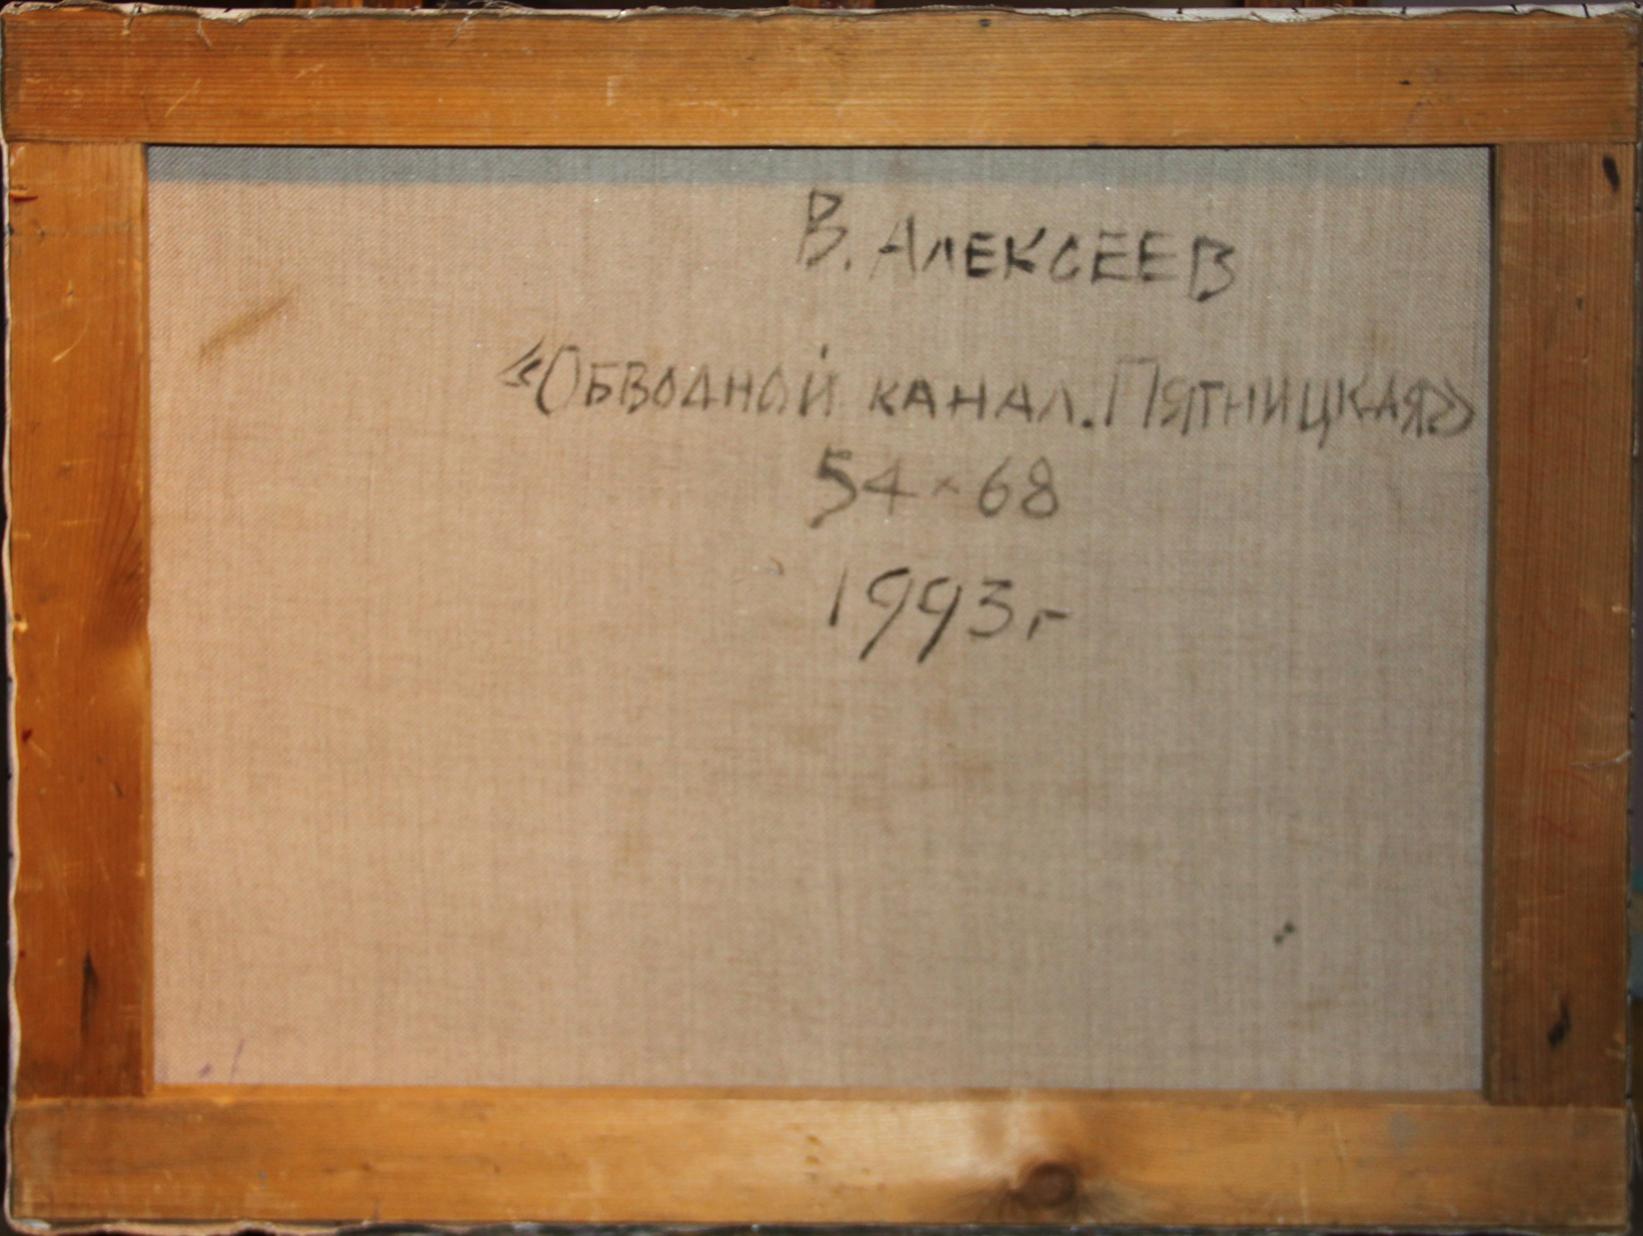 В. Алексеев
«Обводной канал. Пятницкая»
54 × 68
1993 г